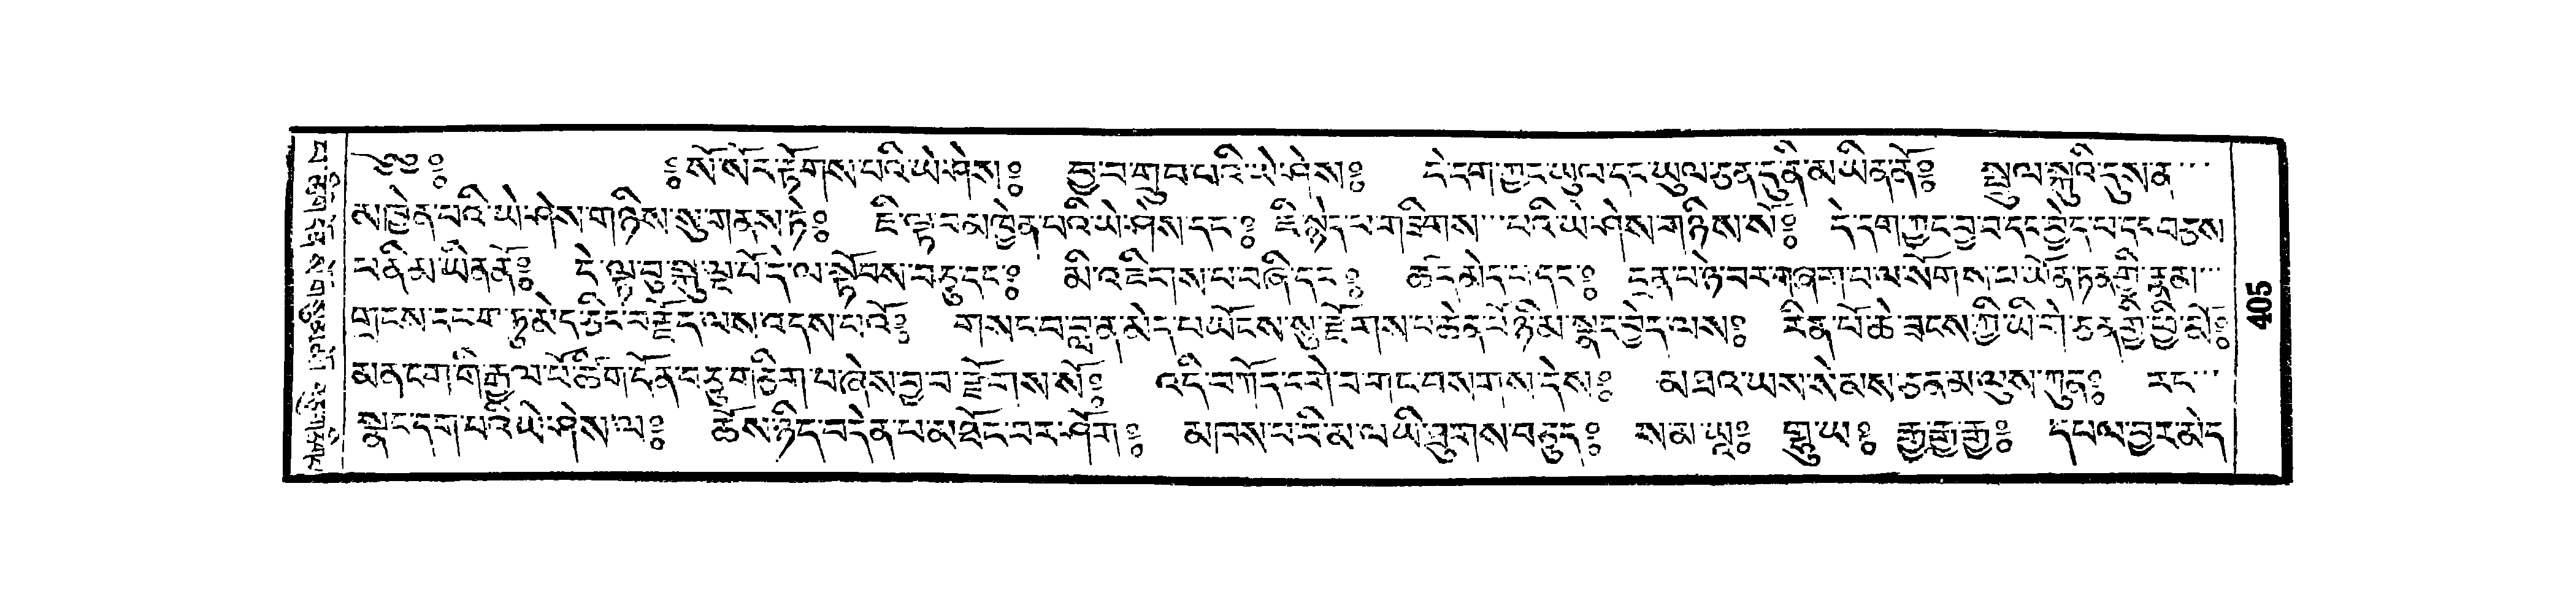 ༄༅༔ ༔སོ་སོར་རྟོགས་པའི་ཡེ་ཤེས༔ བྱ་བ་གྲུབ་པའི་ཡེ་ཤེས༔ དེ་དག་ཀྱང་ཡུལ་དང་ཡུལ་ཅན་དུ་ནི་མ་ཡིན་ནོ༔ སྤྲུལ་སྐུའི་དུས་ན་
མ་ཁྱེན་པའི་ཡེ་ཤེས་གཉིས་སུ་གནས་ཏེ༔ ཇི་ལྟ་བ་མཁྱེན་པའི་ཡེ་ཤེས་དང་༔ ཇི་སྙེད་པ་གཟིགས་པའི་ཡེ་ཤེས་གཉིས་སོ༔ དེ་དག་ཀྱང་བྱ་བ་དང་བྱེད་པ་དང་བཅས་
པ་ནི་མ་ཡིན་ནོ༔ དེ་ལྟ་བུ་སྐུ་སྔ་པོ་དེ་ལ་སྟོབས་བཅུ་དང་༔ མི་འཇིགས་པ་བཞི་དང་༔ ཚད་མེད་པ་དང་༔ དྲན་པ་ཉེ་བར་གཞག་པ་ལ་སོགས་པ་ཡོན་ཏན་གྱི་རྣམ་
གྲངས་དཔག་ཏུ་མེད་ཅིང་བརྗོད་ལས་འདས་པའོ༔ གསང་བ་བླ་ན་མེད་པ་ཡོངས་སུ་རྫོགས་པ་ཆེན་པོ་ཉི་མ་སྣང་བྱེད་ལས༔ རིན་པོ་ཆེ་ཟངས་ཀྱི་ཡི་གེ་ཅན་གྱི་ཕྱི་མོ༔
མན་ངག་གི་རྒྱལ་པོ་ཚིག་དོན་བཅུ་གཅིག་པ་ཞེས་བྱ་བ་རྫོགས་སོ༔ འདི་བཀོད་དགེ་བ་གང་བསགས་དེས༔ མཐའ་ཡས་སེམས་ཅན་མ་ལུས་ཀུན༔ རང་
སྣང་དག་པའི་ཡེ་ཤེས་ལ༔ ཆོས་ཉིད་བདེན་པ་མཐོང་བར་ཤོག༔ མཁས་པ་བི་མ་ལ་ཡི་ཐུགས་བཅུད༔ ས་མ་ཡཱ༔ གུ་ཧྱ༔ རྒྱ་རྒྱ་རྒྱ༔ དཔལ་བྱང་མེད
405